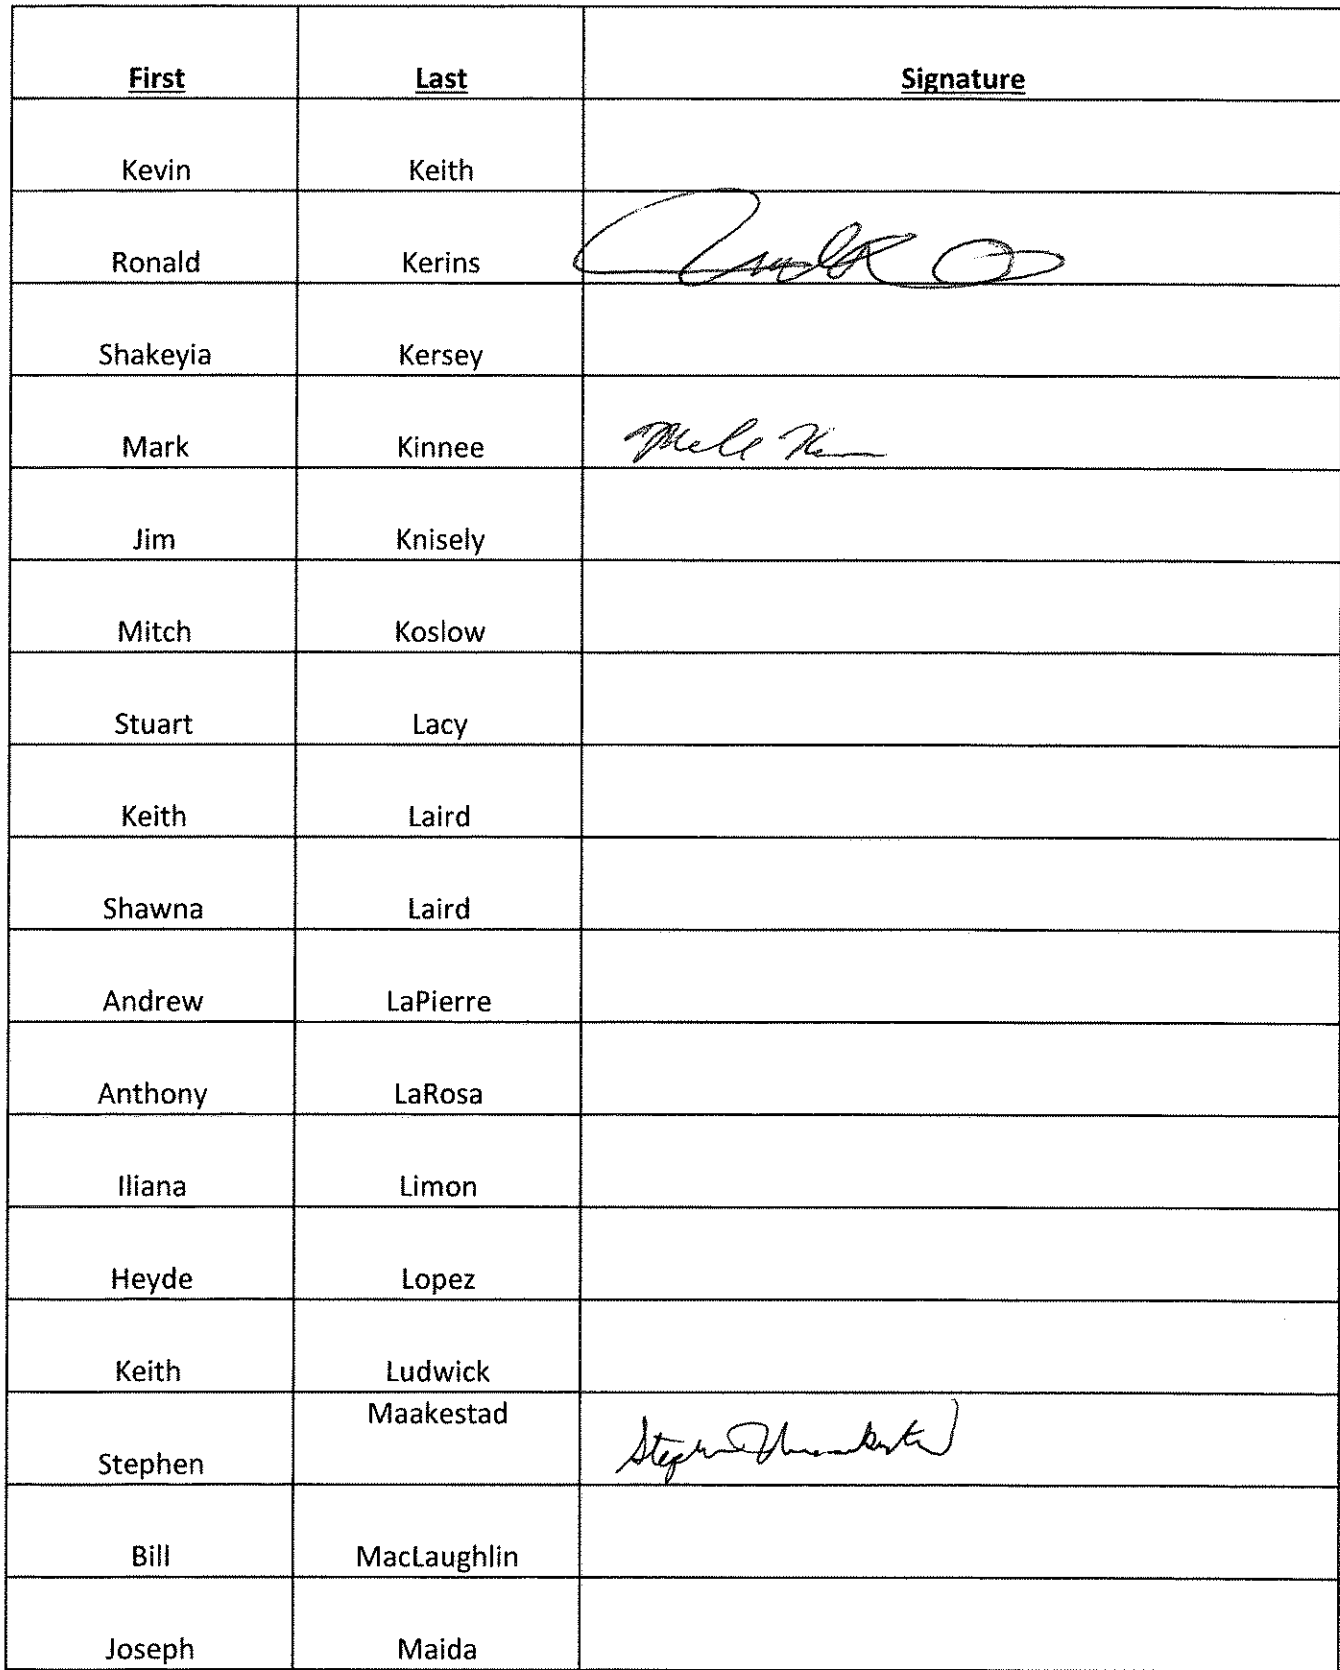 First Last Signature
Kevin Keith
Ronald Kerins
Shakeyia Kersey
Mark Kinnee
Jim Knisely
Mitch Koslow
Stuart Lacy
Keith Laird
Shawna Laird
Andrew LaPierre
Anthony LaRosa
Iliana Limon
Heyde Lopez
Keith Ludwick
Maakestad
Stephen
Bill MacLaughlin
Joseph Maida